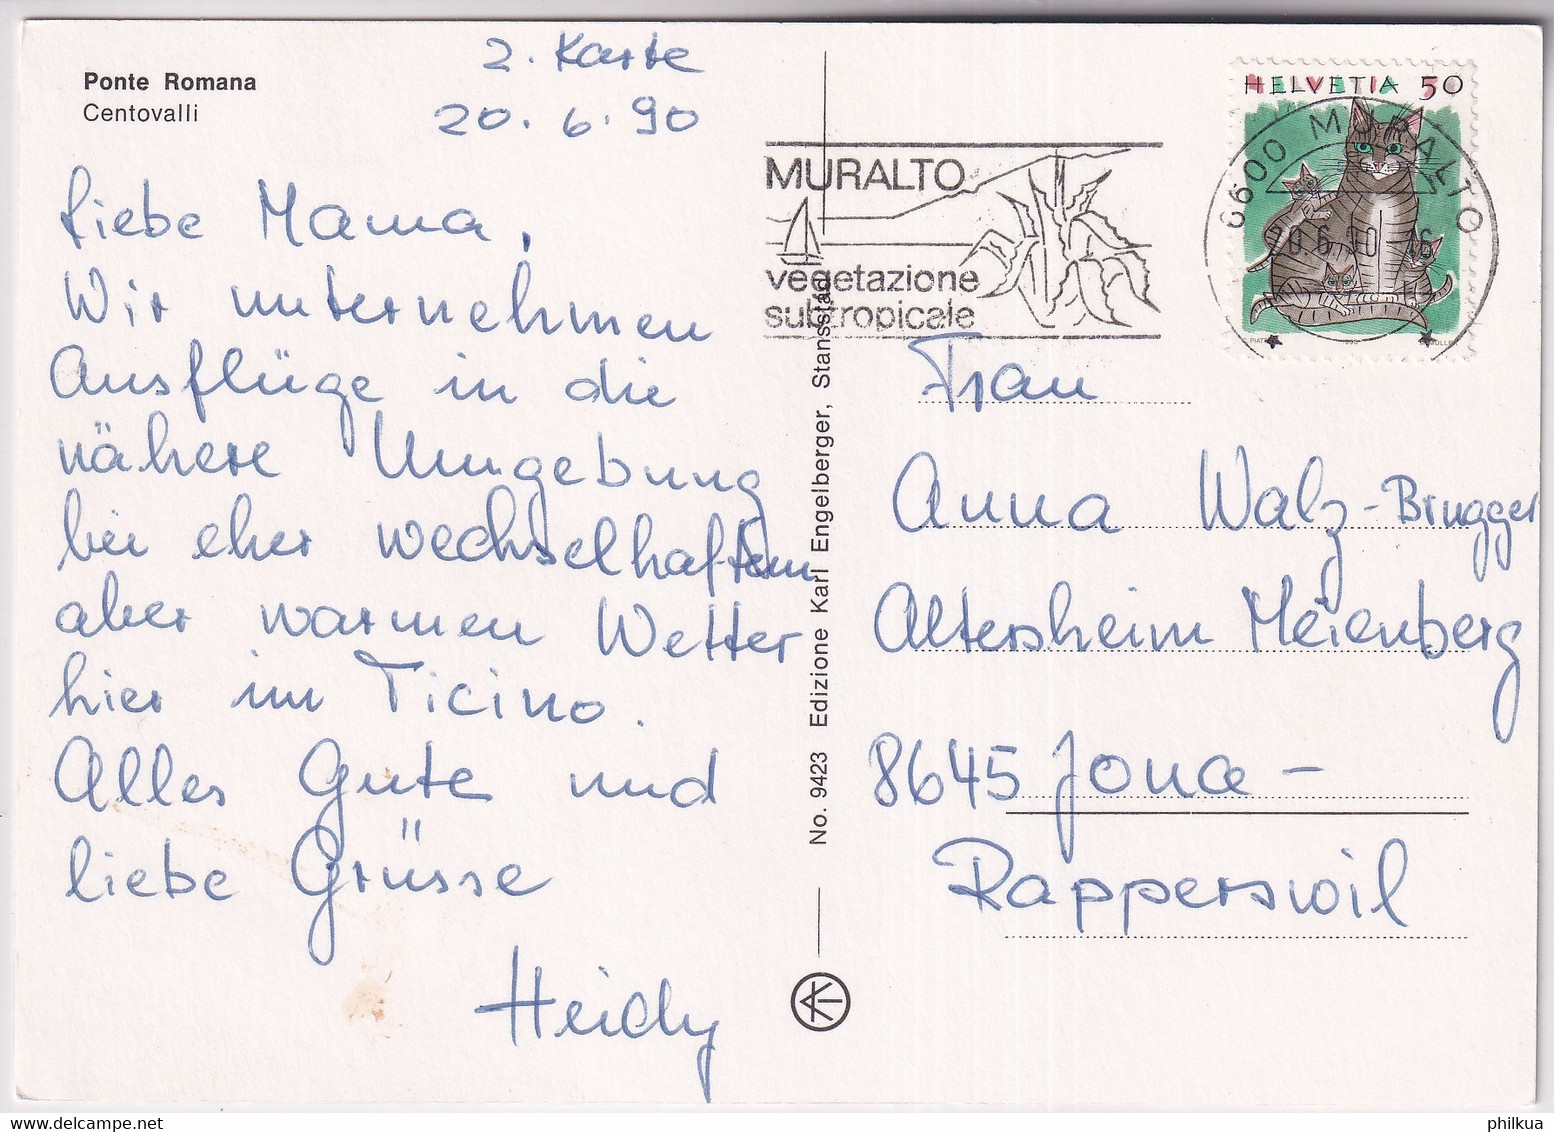 Ponte Romana
Centovalli
2. Karte
20. 6. 90
Liebe Mama,
Wir unternehmen
Ausflüge in die
nähere Umgebung
bei eher wechselhaftem
aber warmen Wetter
hier im Ticino.
Alles Gute und
liebe Grüsse
Heidy
No. 9423 Edizione Karl Engelberger, Stansstad
MURALTO
vegetazione
subtropicale
HELVETIA 50
6600 MURALTO
20.6.90 16
Frau
Anna Walz-Brugger
Altersheim Meienberg
8645 Jona -
Rapperswil
philkua